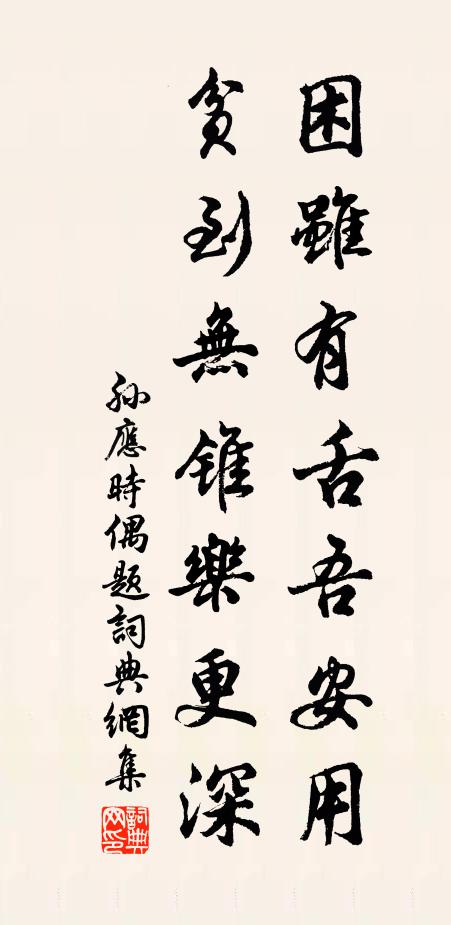 困雖有舌吾安用
貧到無錐樂更深
孫應時偶題詞典網集
詞典網印